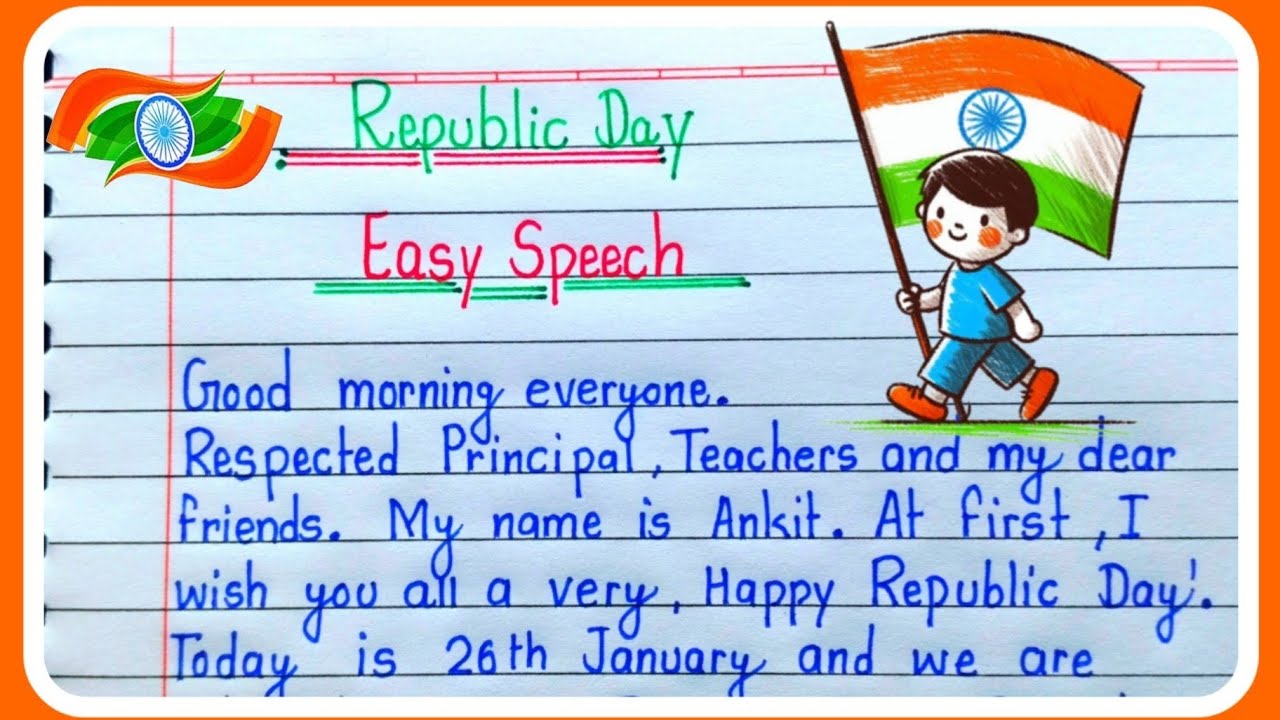 Republic Day
Easy Speech
Good morning everyone.
Respected Principal, Teachers and my dear
friends. My name is Ankit. At first, I
wish you all a very, Happy Republic Day!.
Today is 26th January and we are